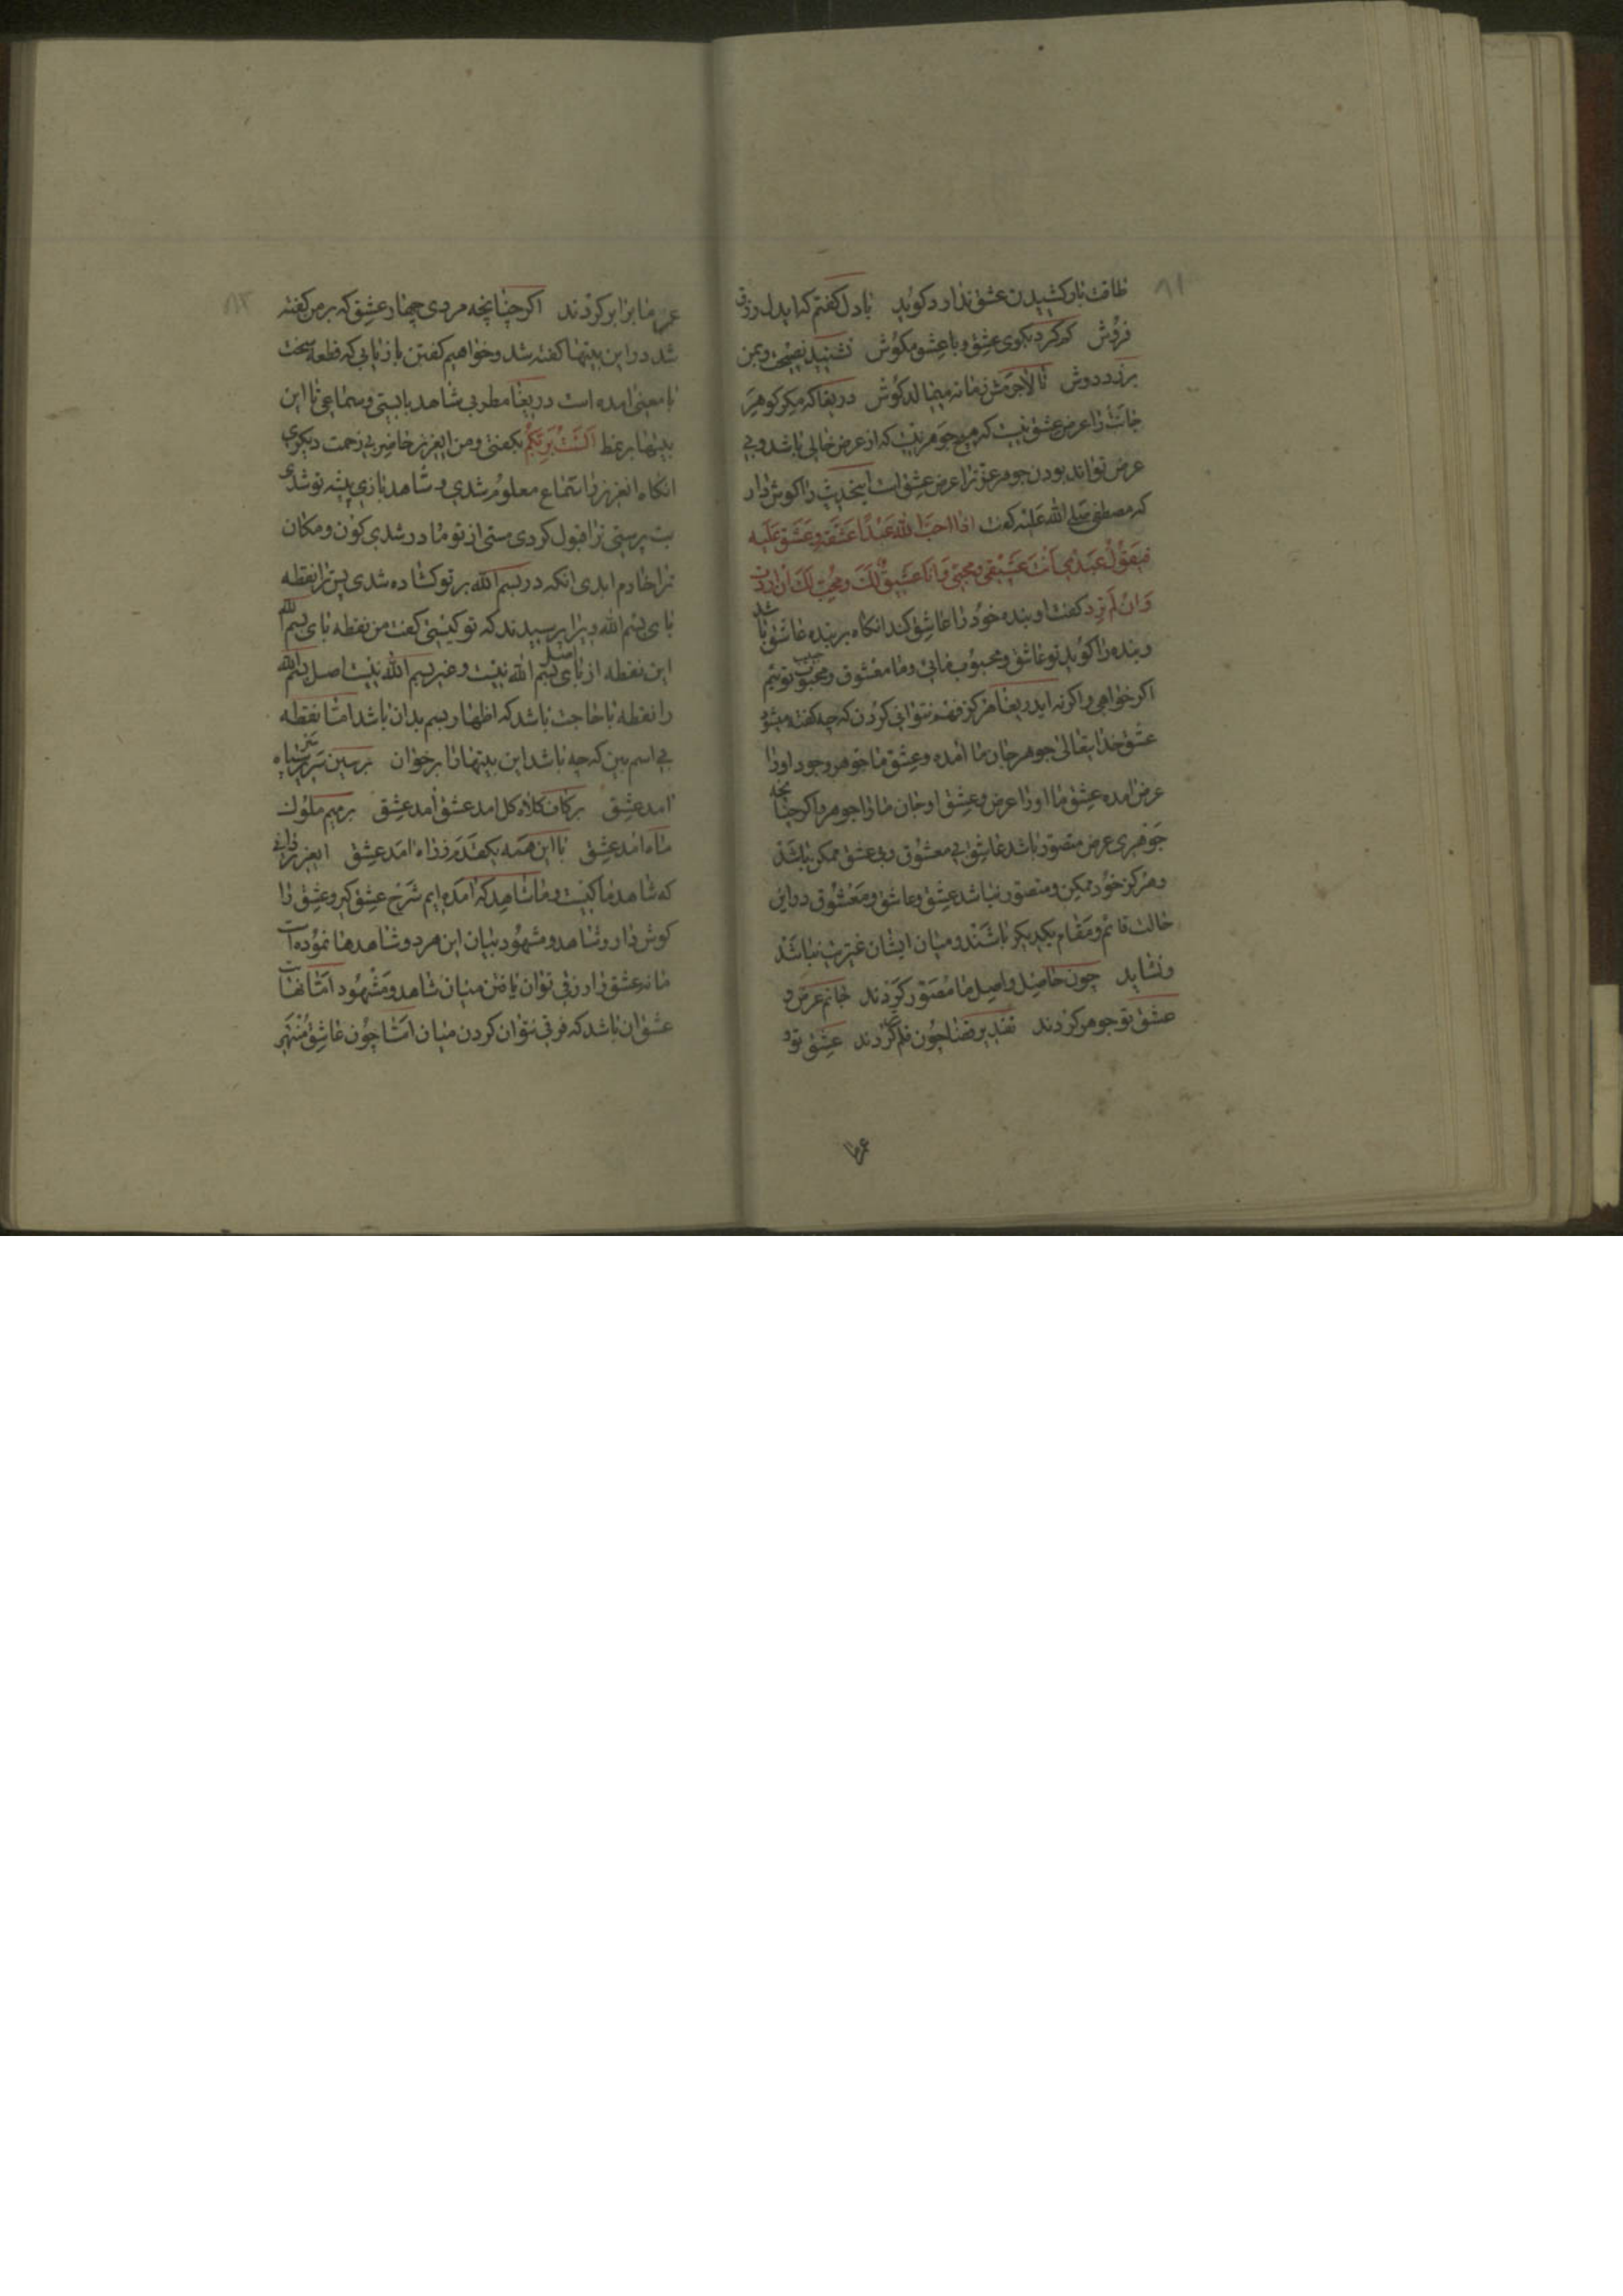 ۸۱
طاقت بار کشیدن عشق ندارد کوید با دل کفتم که ایدل زرق
فروش کم کرد بکوی عشق و با عشق مکوش نشنید نصیحت و بمن
برزد دوش تا لاجرمش زمانه میمالد کوش دریغا که مکر کوهر
جانت را عرض عشق نیست که هیچ جوهر نیست که از عرض خالی باشد و بی
عرض نتواند بودن جوهر عزت را عرض عشق است اینحدیث را کوش دار
که مصطفی صلی الله علیه کفت اذا احب الله عبدًا عشقه و عشق علیه
فیقول عبدی انت عشیقی و محبی و انا عشیق لک و محب لک ان اردت
وان لم ترد کفت او بنده خود را عاشق کند انکاه بر بنده عاشق باشد
و بنده را کوید تو عاشق و محبوب مائی و ما معشوق و محبوب توئیم
اکر خواهی و اکر نه ایدریغا هرکز فهم نتوانی کردن که چه کفته میشود
عشق خدایتعالی جوهر جان ما آمده و عشق ما جوهر وجود او را
عرض آمده عشق ما او را عرض و عشق او جان ما را جوهر و اکر چنانچه
جوهری عرض متصور باشد عاشق بی معشوق و بی عشق ممکن باشد
و هرکز خود ممکن و متصور نباشد عشق و عاشق و معشوق در این
حالت قائم و مقام یکدیکر باشند و میان ایشان غیریت نباشد
و نشاید چون حاصل و اصل ما مصور کردند جانم عرض و
عشق تو جوهر کردند تقدیر قضا چون قلم تر کردند عشق تو و
عمر ما
۸۲
عمر ما برابر کردند اکر چنانچه مردی چهار عشق که بر من کفته
شد در این بیتها کفته شد و خواهیم کفتن باز یابی که قطعه سخت
با معنی امده است دریغا مطربی شاهد بایستی و سماعی تا این
بیتها بر نمط الست بربکم بکفتی و من ایعزیز حاضر بی زحمت دیکری
انکاه انعزیز را سماع معلوم شدی و شاهد بازی پیشه تو شدی
بت پرستی ترا قبول کردی مستی از تو صادر شدی کون و مکان
ترا خادم ابدی انکه در بسم الله بر تو کشاده شدی پس ترا نقطه
بای بسم الله ویرا پرسیدند که تو کیستی کفت من نقطه بای بسم الله
این نقطه از بای اصل بسم الله نیست و غیر بسم الله نیست اصل بسم الله
را نقطه با حاجت باشد که اظهار بسم بدان باشد امتا نقطه
بی اسم ببین که چه باشد این بیتها را بر خوان
امد عشق بر کاف کلاه کل امد عشق آمد عشق بر میم ملوک
ماه امد عشق با این همه یکقدم ز راه امد عشق ایعزیز دانی
که شاهد ما کیست و ما شاهد که آمده ایم شرح عشق کبیر و عشق را
کوش دار و شاهد و مشهود بیان این هر دو شاهدها نموده است
میانه عشق را فرقی توان یافتن میان شاهد و مشهود امتا نهایت
عشق ان باشد که فرقی نتوان کردن میان امتا چون عاشق منتهی